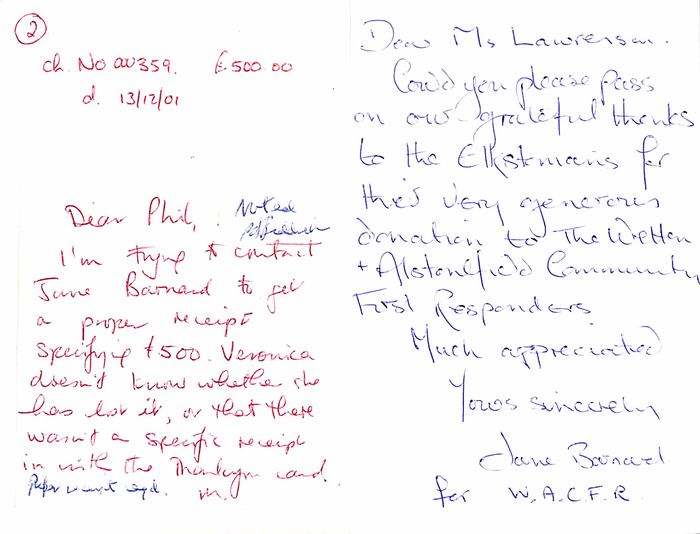 2
ch. No 00359. £500.00
d. 13/12/01
Dear Phil,
Noted
I'm trying to contact
Jane Barnard to get
a proper receipt
specifying £500. Veronica
doesn't know whether she
has lost it, or that there
wasn't a specific receipt
in with the Thankyou card.
m.
Dear Ms Lawrenson.
Could you please pass
on our grateful thanks
to the Elkstmans for
this very generous
donation to The Wetton
+ Alstonefield Community
First Responders
Much appreciated
Yours sincerely
Jane Barnard
for W.A.C.F.R.